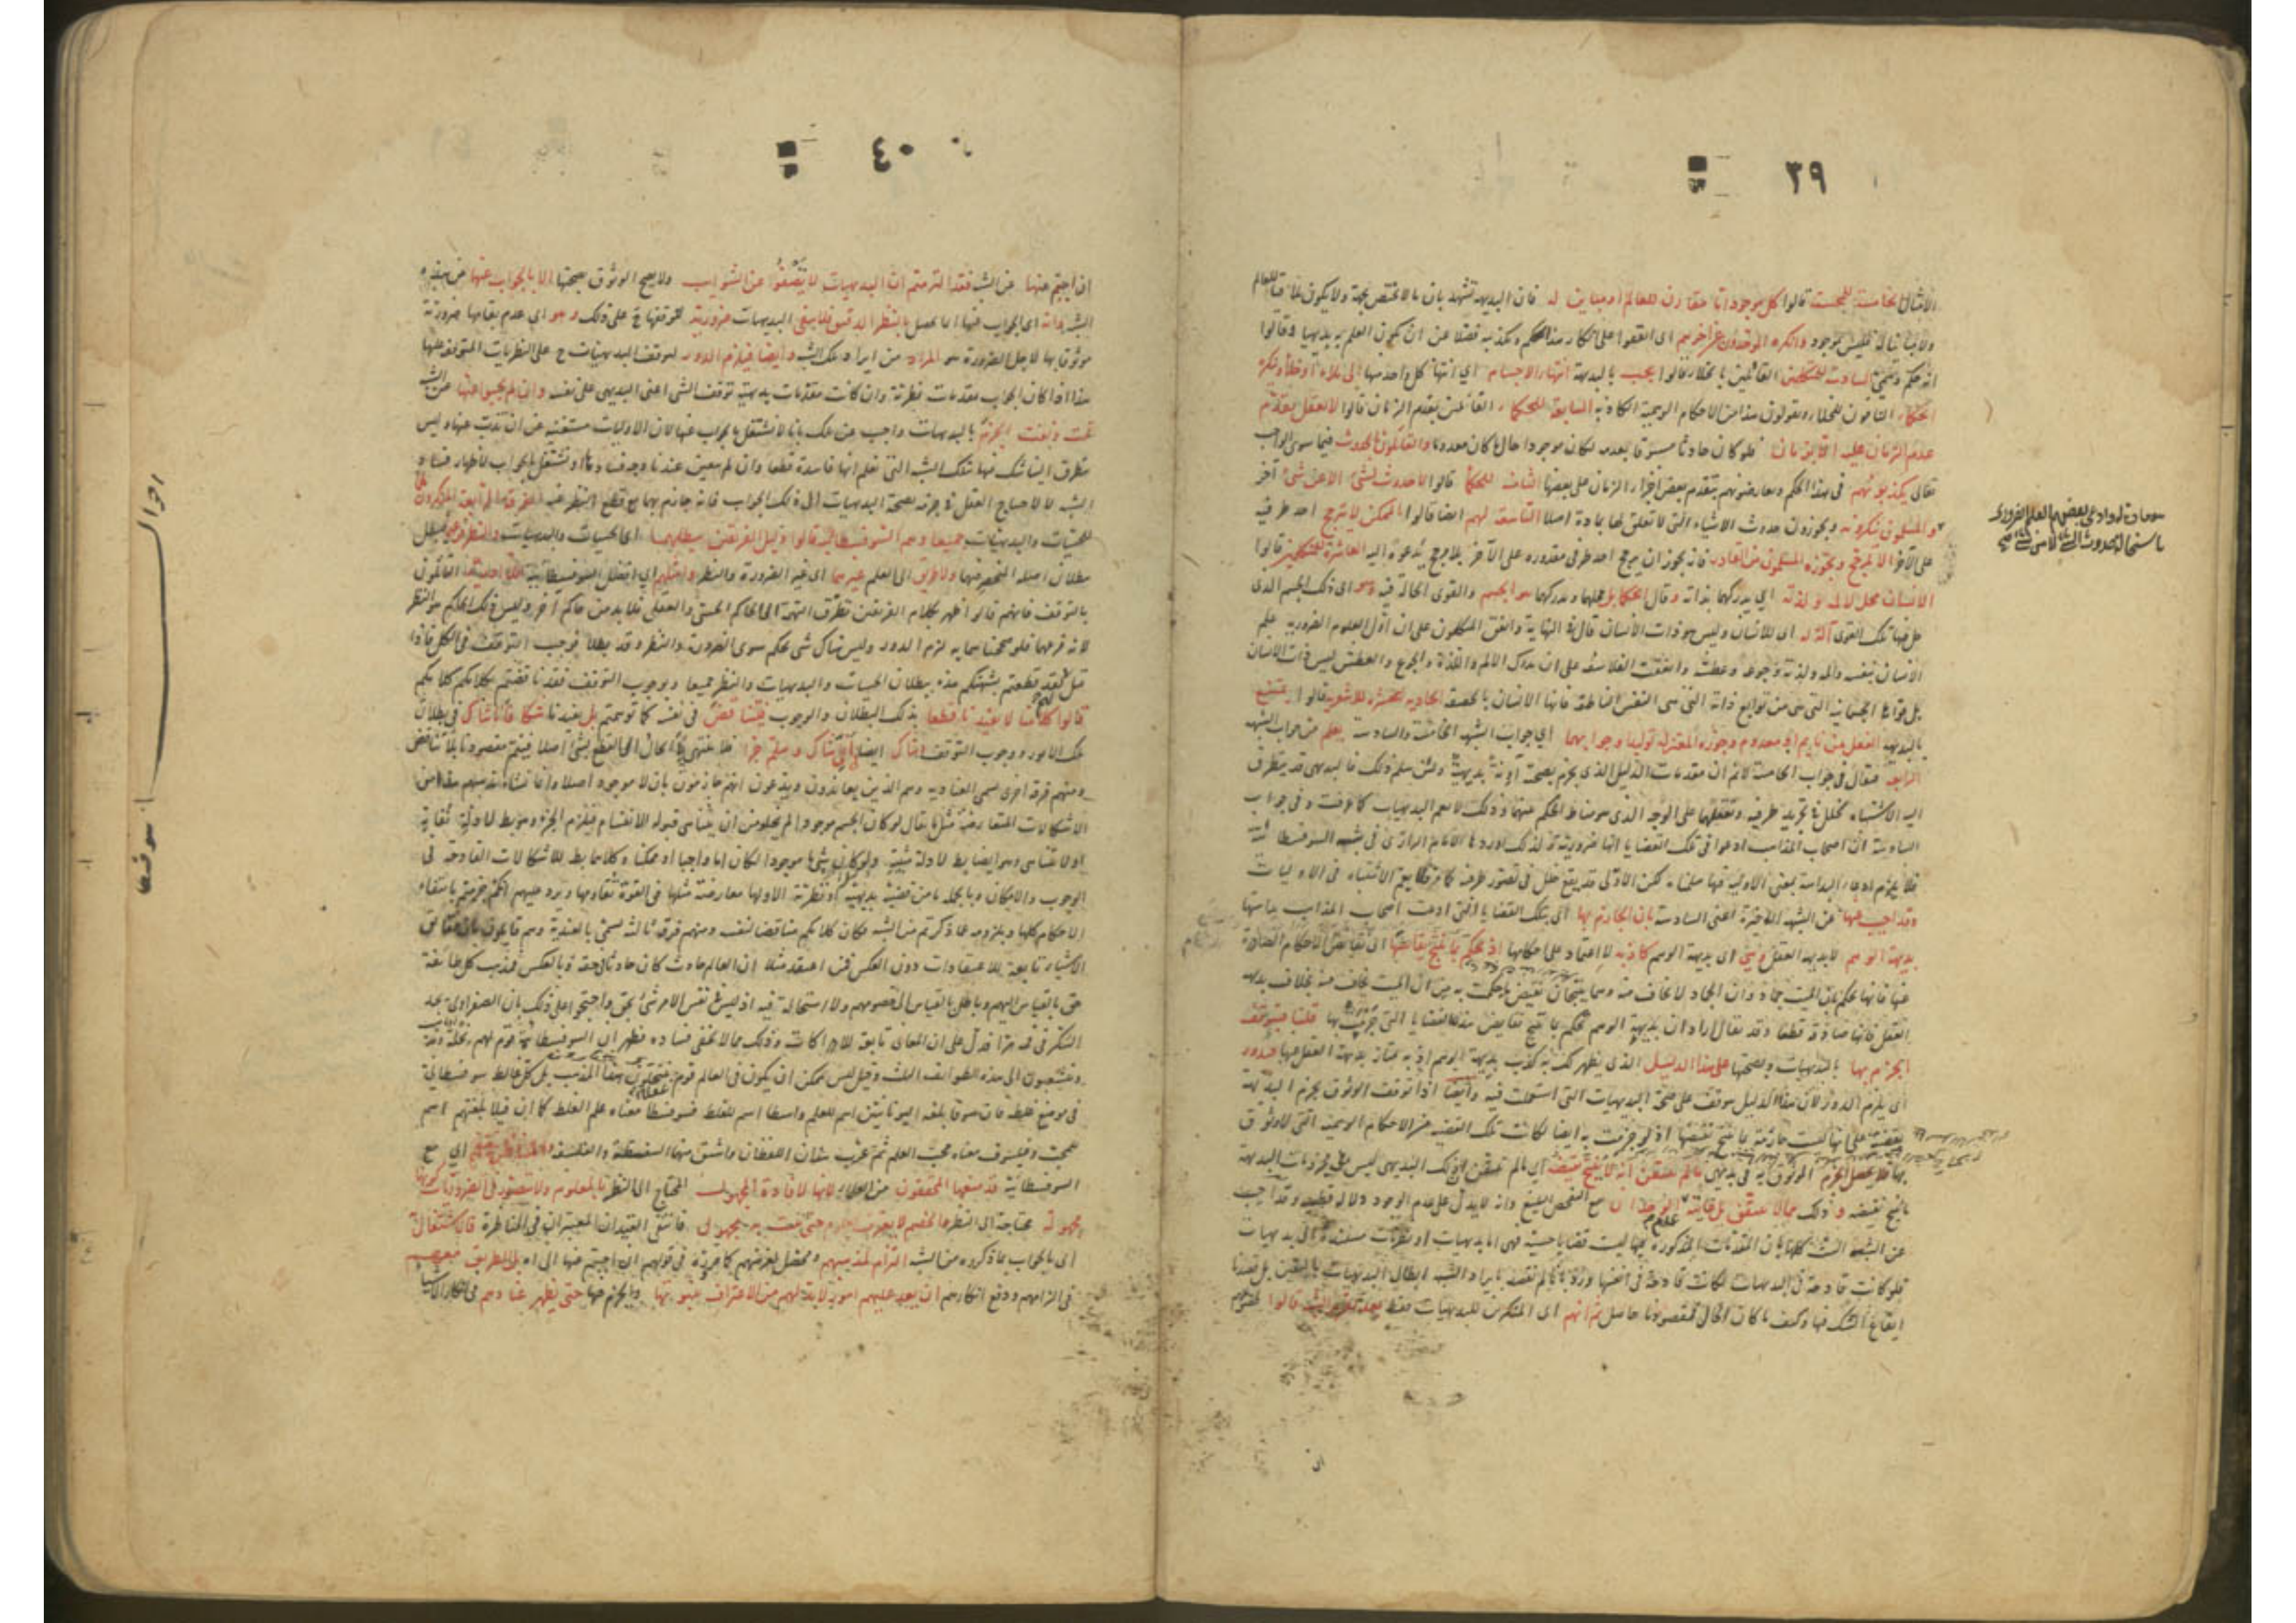 ٣٩
الامثال الخامسة للمجسمة قالوا كل موجود اما مقارن للعالم او مباين له فان البديهة تشهد بان ما لا يختص بجهة ولا يكون ملاقيا للعالم
ولا مباينا له فليس بموجود وانكره الموحدون عن آخرهم اى اتفقوا على انكار هذا الحكم وتكذيبه فضلا عن ان يكون العلم به بديهيا وقالوا
انه حكم وهمى السادسة للمتكلمين القائلين بالخلاء قالوا يجب بالبديهة انتهاء الاجسام اي انتهاء كل واحد منها الى ملاء او خلاء وينكره
الحكماء النافون للخلاء ويقولون هذا من الاحكام الوهمية الكاذبة السابعة للحكماء القائلين بقدم الزمان قالوا لا يعقل تقدم
عدم الزمان عليه الا بزمان فلو كان حادثا مسبوقا بعدمه لكان موجودا حال ما كان معدوما والقائلون بالحدوث فيما سوى الواجب
تعالى يكذبونهم فى هذا الحكم ويعارضونهم بتقدم بعض اجزاء الزمان على بعضها الثامنة للحكماء قالوا لا حدوث لشئ الا عن شئ آخر
والمسلمون ينكرونه ويجوزون حدوث الاشياء التى لا تعلق لها بمادة اصلا التاسعة لهم ايضا قالوا الممكن لا يترجح احد طرفيه
على الآخر الا بمرجح ويجوزه المسلمون من القادر فانه يجوز ان يرجح احد طرفى مقدوره على الآخر بلا مرجح يدعوه اليه العاشرة للمتكلمين قالوا
الانسان محل لالمه ولذته اي يدركهما بذاته وقال الحكماء بل محلهما ومدركهما هو الجسم والقوى الحالة فيه وهو اى ذلك الجسم الذى
حل فيه تلك القوى آلة له اى للانسان وليس هو ذات الانسان قال فى النهاية واتفق المتكلمون على ان اول العلوم الضرورية علم
الانسان بنفسه والمه ولذته وجوعه وعطشه واتفقت الفلاسفة على ان مدرك الالم واللذة والجوع والعطش ليس ذات الانسان
بل قواه الجسمانية التى هى من توابع ذاته التى هى النفس الناطقة فانها الانسان بالحقيقة الحادية عشرة للاشعرية قالوا يمتنع
بالبديهة الفعل من نايم او معدوم وجوزه المعتزلة توليدا وجوابهما اي جواب الشبهة الخامسة والسادسة يعلم من جواب الشبهة
الرابعة فيقال فى جواب الخامسة لا نم ان مقدمات الدليل الذى يجزم بصحته آونة بديهية ولئن سلم ذلك فالبديهى قد يتطرق
اليه الاشتباه لخلل فى تجريد طرفيه وتعقلهما على الوجه الذى هو مناط الحكم بينهما وذلك لا يعم البديهيات كما عرفت وفى جواب
السادسة ان اصحاب المذاهب ادعوا فى تلك القضايا انها ضرورية ولذلك اوردها الامام الرازى فى شبه السوفسطائية
وقد اجيب عنها عن الشبهة الاخيرة اعنى السادسة بان الجازم بها اى بتلك القضايا التى ادعت اصحاب المذاهب بداهتها
بديهة الوهم لا بديهة العقل وهى اى بديهة الوهم كاذبة لا اعتماد على احكامها اذ يحكم بما ينتج نقائضها اى نقائض الاحكام الصادرة
عنها فانها تحكم بان الميت جماد وان الجماد لا يخاف منه وهما ينتجان نقيض ما حكمت به من ان الميت يخاف منه بخلاف بديهة
العقل فانها صادقة قطعا وقد يقال اراد ان بديهة الوهم تحكم بما ينتج نقايض هذه القضايا التى جزمت بها قلنا فيتوقف
الجزم بها بالبديهيات وبصحتها على هذا الدليل الذى يظهر لك به كذب بديهة الوهم اذ به يمتاز بديهة العقل عنها فيدور
اى يلزم الدور لان هذا الدليل يتوقف على صحة البديهيات التى استعملت فيه وايضا اذا توقف الوثوق بجزم البديهة
بقضية على انها ليست جازمة بما ينتج نقيضها اذ لو جزمت به ايضا لكانت تلك القضية من الاحكام الوهمية التى لا وثوق
بها فلا يحصل الجزم الوثوق به فى بديهى ما لم يتيقن انه لا ينتج نقيضه اي ما لم يتيقن ان ذلك البديهى ليس فى مجزومات البديهة
ما ينتج نقيضه وذلك مما لا يتيقن بل غايته عدم الوجدان مع التفحص البليغ وانه لا يدل على عدم الوجود دلالة قطعية وقد اجيب
عن الشبه الست كلها بان المقدمات المذكورة فيها ليست قضايا حسية فهى اما بديهيات او نظريات مستندة الى بديهيات
فلو كانت قادحة فى البديهيات لكانت قادحة فى انفسها ورد بانا لم نقصد بايراد الشبه ابطال البديهيات باليقين بل قصدنا
ايقاع الشك فيها وكيف ما كان الحال فمقصودنا حاصل ثم انهم اى المنكرين للبديهيات فقط بعد تقرير الشبه قالوا لخصومهم
٤٠
ان اجبتم عنها عن الشبه فقد التزمتم ان البديهيات لا تصفوا عن الشوايب ولا يصح الوثوق بصحتها الا بالجواب عنها عن هذه
الشبه وانه اى الجواب عنها انما يحصل بالنظر الدقيق فلا يبقى البديهيات ضرورية لتوقفها ح على ذلك وهو اى عدم بقائها ضرورية
موثوقا بها لاجل الضرورة هو المراد من ايراد تلك الشبه وايضا فيلزم الدور لتوقف البديهيات ح على النظريات المتوقفة عليها
هذا اذا كان الجواب بمقدمات نظرية وان كانت مقدماته بديهية توقف الشئ اعنى البديهى على نفسه وان لم يجيبوا عنها عن الشبه
تمت ونفت الجزم بالبديهيات واجيب عن ذلك بانا لا نشتغل بالجواب عنها لان الاوليات مستغنية عن ان يذب عنها وليس
يتطرق الينا شك فيها بتلك الشبه التى نعلم انها فاسدة قطعا وان لم يتعين عندنا وجه فسادها او نشتغل بالجواب لاظهار فساد
الشبه لا لاحتياج العقل فى جزمه بصحة البديهيات الى ذلك الجواب فانه جازم بها مع قطع النظر عنه الفرقة الرابعة المنكرون
للحسيات والبديهيات جميعا وهم السوفسطائية قالوا دليل الفريقين يبطلهما اى الحسيات والبديهيات والنظر فرعهما فيبطل
ببطلان اصله المنحصر فيهما ولا طريق الى العلم غيرهما اى غير الضرورة والنظر وامثلهم اى افضل السوفسطائية اللاادرية القائلون
بالتوقف فانهم قالوا ظهر بكلام الفريقين تطرق التهمة الى الحاكم الحسى والعقلى فلا بد من حاكم آخر وليس ذلك الحاكم هو النظر
لانه فرعهما فلو صححناهما به لزم الدور وليس هناك شئ يحكم سوى الضرورة والنظر وقد بطلا فوجب التوقف فى الكل فاذا
قيل لهم لقد قطعتم بشبهتكم هذه ببطلان الحسيات والبديهيات والنظر جميعا وبوجوب التوقف فقد ناقضتم بكلامكم كلامكم
قالوا كلامنا لا يفيدنا قطعا بذلك البطلان والوجوب فيتناقض فى نفسه كما توهمتم بل يفيدنا شكا فانا شاك فى بطلان
تلك الامور ووجوب التوقف وشاك ايضا فى انى شاك وهلم جرا فلا ينتهى بى الحال الى القطع بشئ اصلا فيتم مقصودنا بلا تناقض
ومنهم فرقة اخرى تسمى العنادية وهم الذين يعاندون ويدعون انهم جازمون بان لا موجود اصلا وانما نشاء مذهبهم هذا من
الاشكالات المتعارضة مثل ما يقال لو كان الجسم موجودا لم يخل من ان يتناهى قبوله الانقسام فيلزم الجزء وهو بط لادلة نفاته
او لا يتناهى وهو ايضا بط لادلة مثبتيه ولو كان شئ موجودا لكان اما واجبا او ممكنا وكلاهما بط للاشكالات القادحة فى
الوجوب والامكان وبالجملة ما من قضية بديهية او نظرية الا ولها معارضة مثلها فى القوة تقاومها ويرد عليهم انكم جزمتم بانتفاء
الاحكام كلها ويلزومه مما ذكرتم من الشبه فكان كلامكم مناقضا لنفسه ومنهم فرقة ثالثة تسمى بالعندية وهم قايلون بان حقايق
الاشياء تابعة للاعتقادات دون العكس فمن اعتقد مثلا ان العالم حادث كان حادثا فى حقه وبالعكس فمذهب كل طائفة
حق بالقياس اليهم وباطل بالقياس الى خصومهم ولا استحالة فيه اذ ليس فى نفس الامر شئ بحق واحتجوا على ذلك بان الصفراوى يجد
السكر فى فمه مرا فدل على ان المعانى تابعة للادراكات وذلك مما لا يخفى فساده فظهر ان السوفسطائية قوم لهم نحلة ومذهب
ويتشعبون الى هذه الطوايف الثلث وقيل ليس يمكن ان يكون فى العالم قوم عقلاء ينتحلون هذا المذهب بل كل غالط سوفسطائى
فى موضع غلطه فان سوفا بلغة اليونانيين اسم للعلم واسطا اسم للغلط فسوفسطا معناه علم الغلط كما ان فيلا بلغتهم اسم
للمحب وفيلسوف معناه محب العلم ثم عرب هذان اللفظان واشتق منهما السفسطة والفلسفة والمناظرة معهم اي مع
السوفسطائية قد منعها المحققون من العلماء لانها لافادة المجهول المحتاج الى النظر بالمعلوم ولا يتصور فى الضروريات كونها
مجهولة محتاجة الى النظر والخصم لا يعترف بمعلوم حتى يثبت به مجهول فانتفى القيدان المعتبران فى المناظرة فالاشتغال به
اى بالجواب عما ذكروه من الشبه التزام لمذهبهم ومحصل لغرضهم كما عرفته فى قولهم ان اجبتم عنها الى آخره بل الطريق معهم
فى الزامهم ودفع انكارهم ان يعد عليهم امور لا بد لهم من الاعتراف بثبوتها والجزم بها حتى يظهر عنادهم فى انكار الاشياء